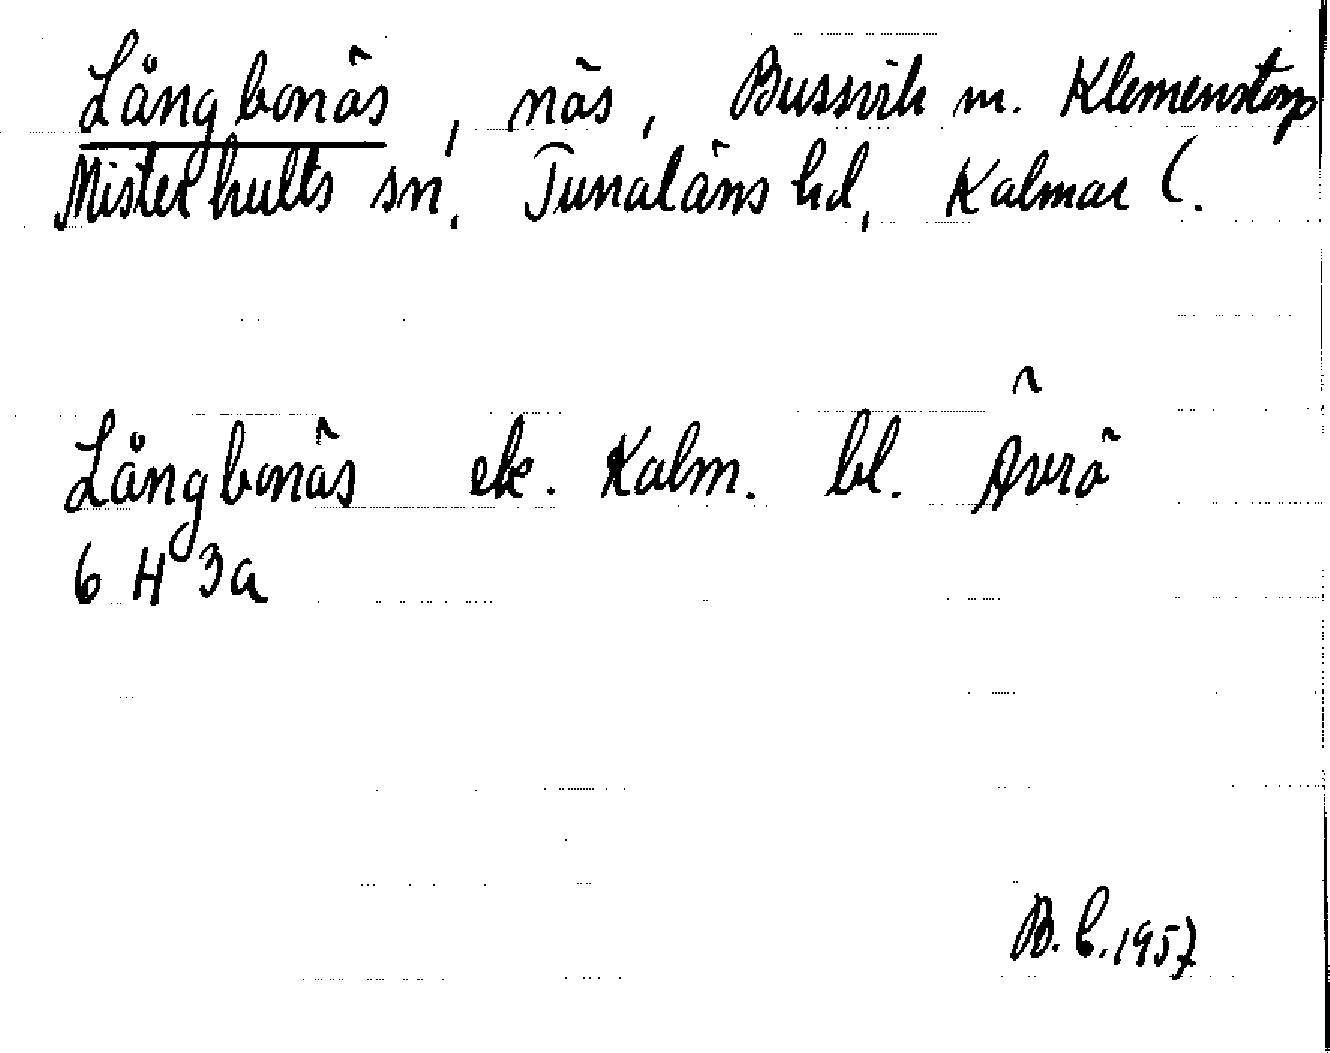 Långbonäs, näs, Bussvik m. Klemenstorp
Misterhults sn, Tunaläns hd, Kalmar l.
Långbonäs ek. Kalm. bl. Ävrö
6 H 3a
B. C. 1957